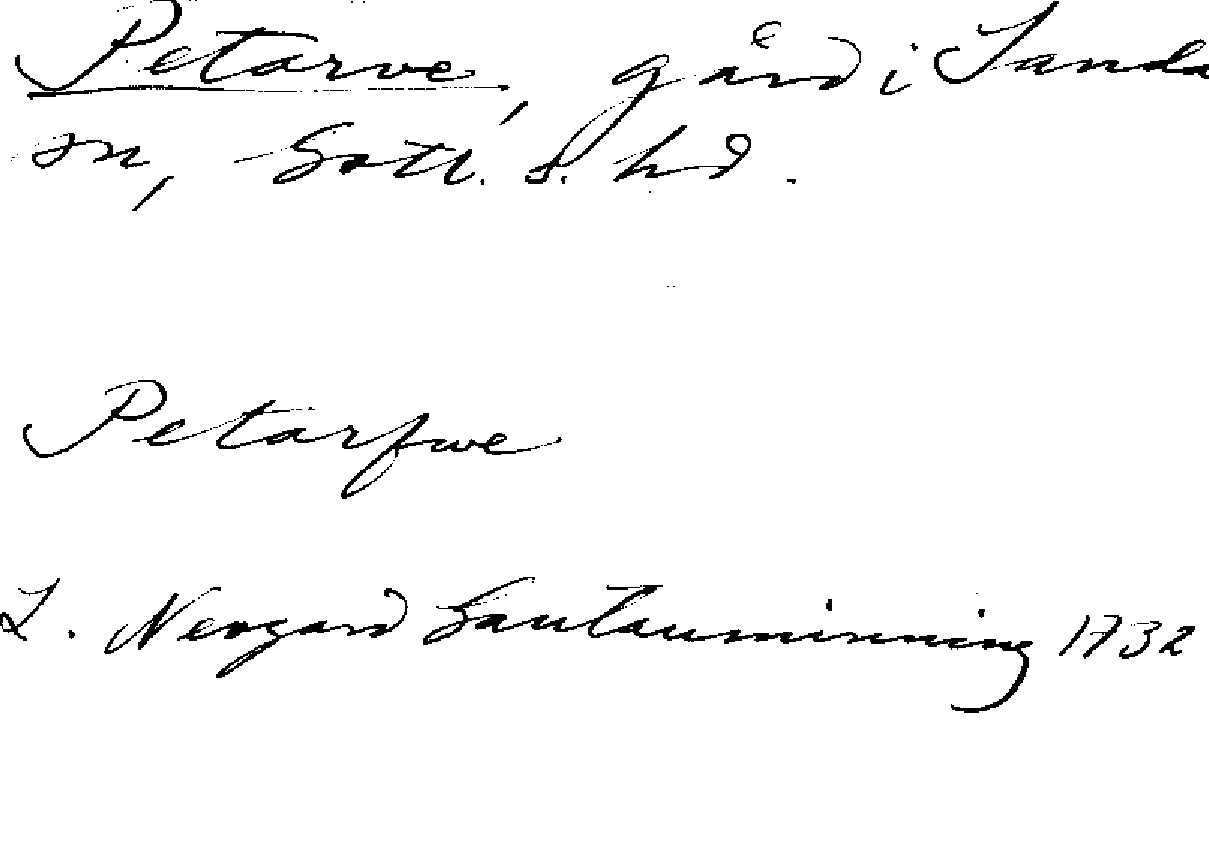 Petarve, gård i Sanda
sn, Gotl. s. hd.
Petarfwe
L. Neogard Gautauminning 1732